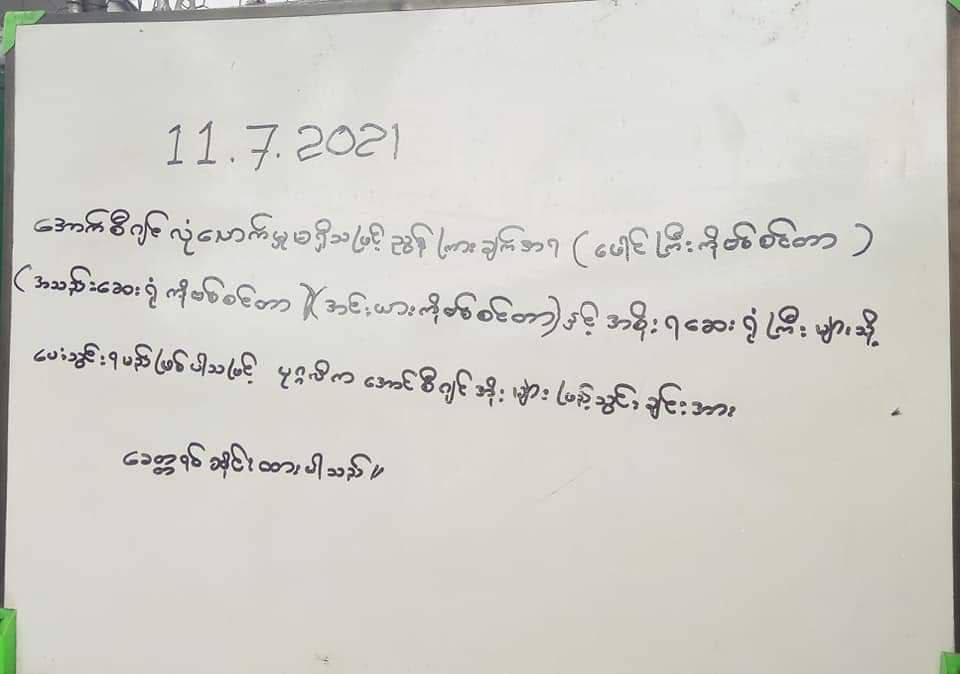 11.7.2021
အောက်စီဂျင် လုံလောက်မှုမရှိသဖြင့် ညွှန်ကြားချက်အရ (ဖောင်ကြီးကိုဗစ်စင်တာ)
(အသည်းဆေးရုံကိုဗစ်စင်တာ)(အင်းယားကိုဗစ်စင်တာ)နှင့် အစိုးရဆေးရုံကြီးများသို့
ပေးသွင်းရမည်ဖြစ်ပါသဖြင့် ပုဂ္ဂလိက အောင်စီဂျင်အိုးများဖြည့်သွင်းခြင်းအား
ခေတ္တရပ်ဆိုင်းထားပါသည်။